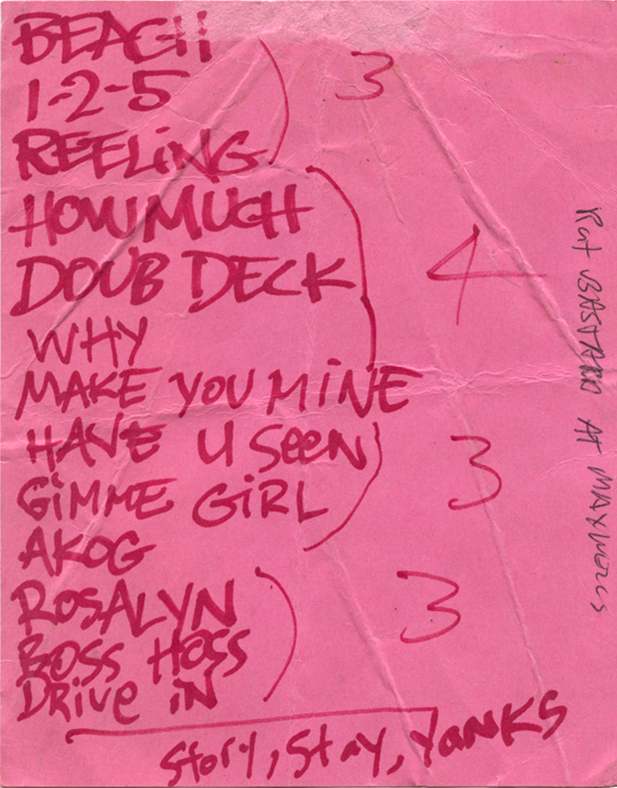 BEACH
1-2-5
3
REELiNG
HOW MUCH
DOUB DECK
4
WHY
MAKE YOU MiNE
HAVE U SEEN
GiMME GiRL
3
AKOG
ROSALYN
BOSS HOSS
3
DRive iN
Story, Stay, YANKS
Rat BASTARD At MAXWELLS